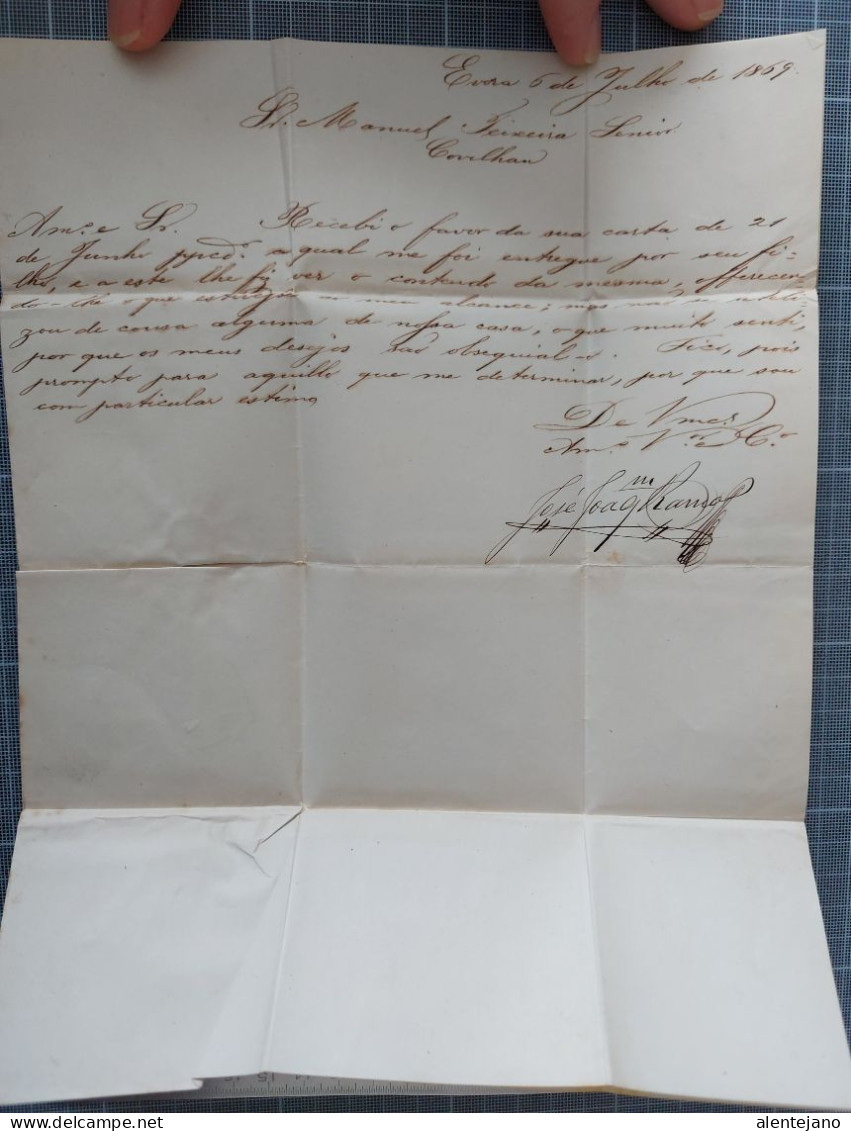 Evora 6 de Julho de 1869.
Sr. Manuel Teixeira Senior
Covilhan
Am.º e Sr. Recebi o favor da sua carta de 21
de Junho ppcd.º a qual me foi entregue por seu fi-
lho, e a este lhe fiz ver o contendo da mesma, offerecen-
do-lhe o que estivesse ao meu alcance; mas não se utili-
zou de cousa alguma de nossa casa, o que muito senti,
por que os meus desejos são obsequial-o. Fico, pois
prompto para aquillo que me determinar, por que sou
com particular estima
De Vmcê
Am.º V.ºr e C.º
José Joaq.m Ramos
delcampe.net
alentejano